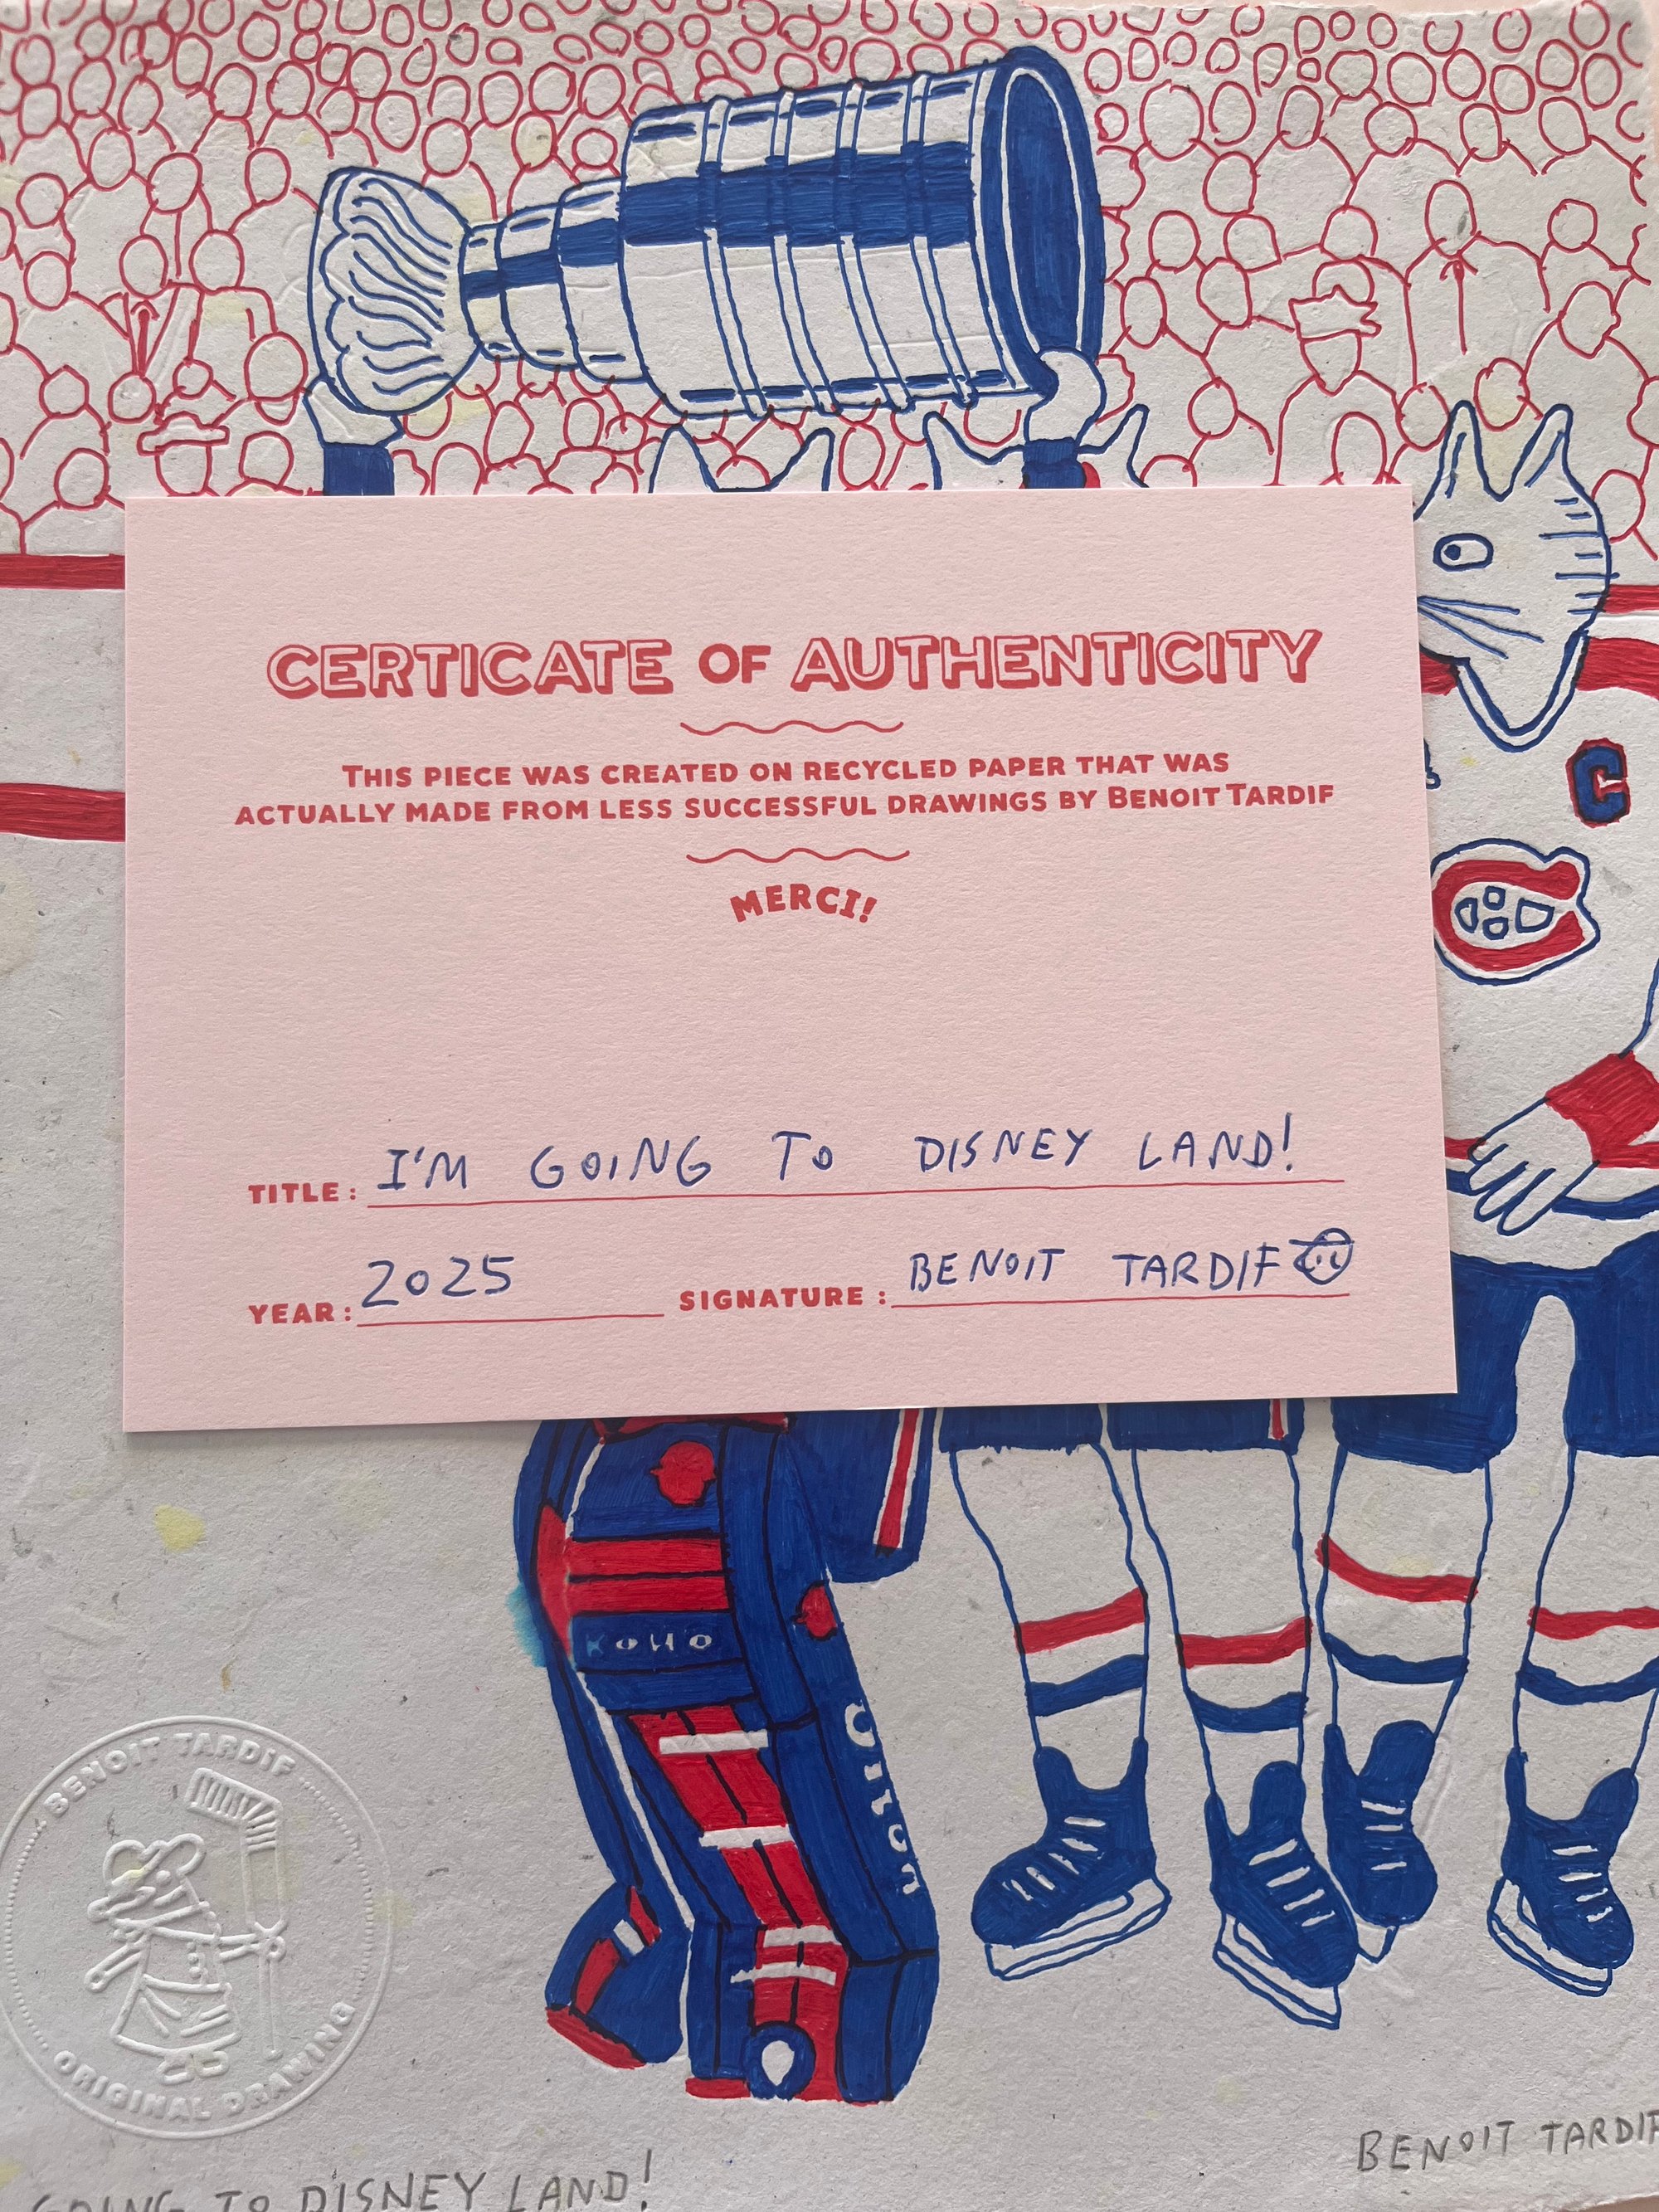 CERTICATE OF AUTHENTICITY
THIS PIECE WAS CREATED ON RECYCLED PAPER THAT WAS
ACTUALLY MADE FROM LESS SUCCESSFUL DRAWINGS BY BENOIT TARDIF
MERCI!
TITLE: I'M GOING TO DISNEY LAND!
YEAR: 2025 SIGNATURE: BENOIT TARDIF
C
KOHO
BENOIT TARDIF
ORIGINAL DRAWING
GOING TO DISNEY LAND!
BENOIT TARDIF